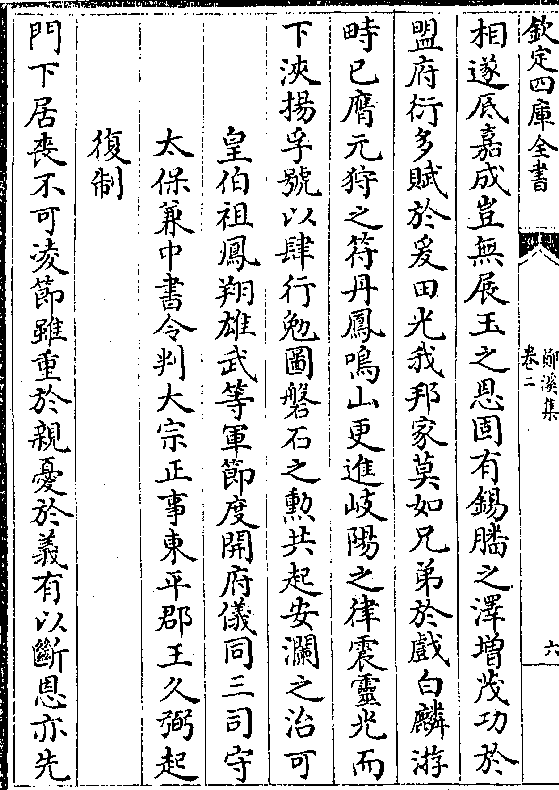 欽定四庫全書
鄖溪集
卷二
六
相遂底嘉成豈無展玉之恩固有錫膰之澤增茂功於
盟府衍多賦於爰田光我邦家莫如兄弟於戲白麟游
畤已膺元狩之符丹鳳鳴山更進岐陽之律震靈光而
下浹揚孚號以肆行勉圖磐石之勲共起安瀾之治可
皇伯祖鳳翔雄武等軍節度開府儀同三司守
太保兼中書令判大宗正事東平郡王久弼起
復制
門下居喪不可凌節雖重於親憂於義有以斷恩亦先